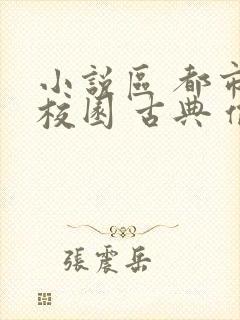 小説區 都市
校園 古典
張震岳